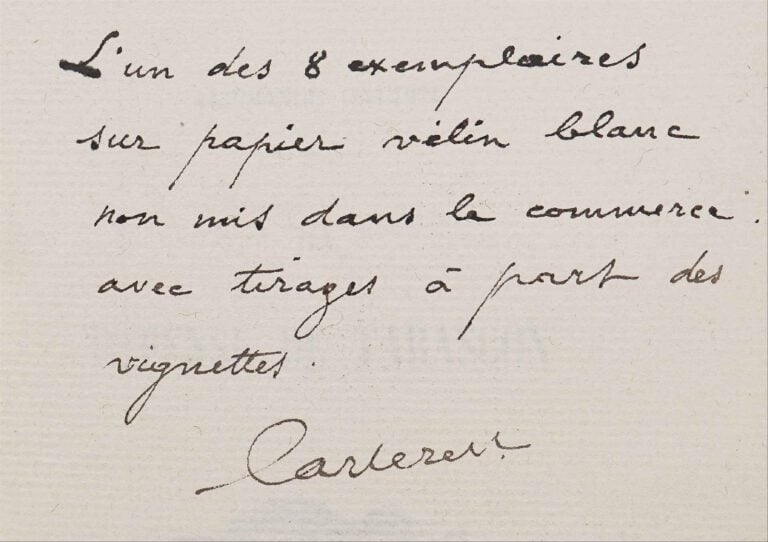 L'un des 8 exemplaires
sur papier vélin blanc
non mis dans le commerce.
avec tirages à part des
vignettes.
Carteret